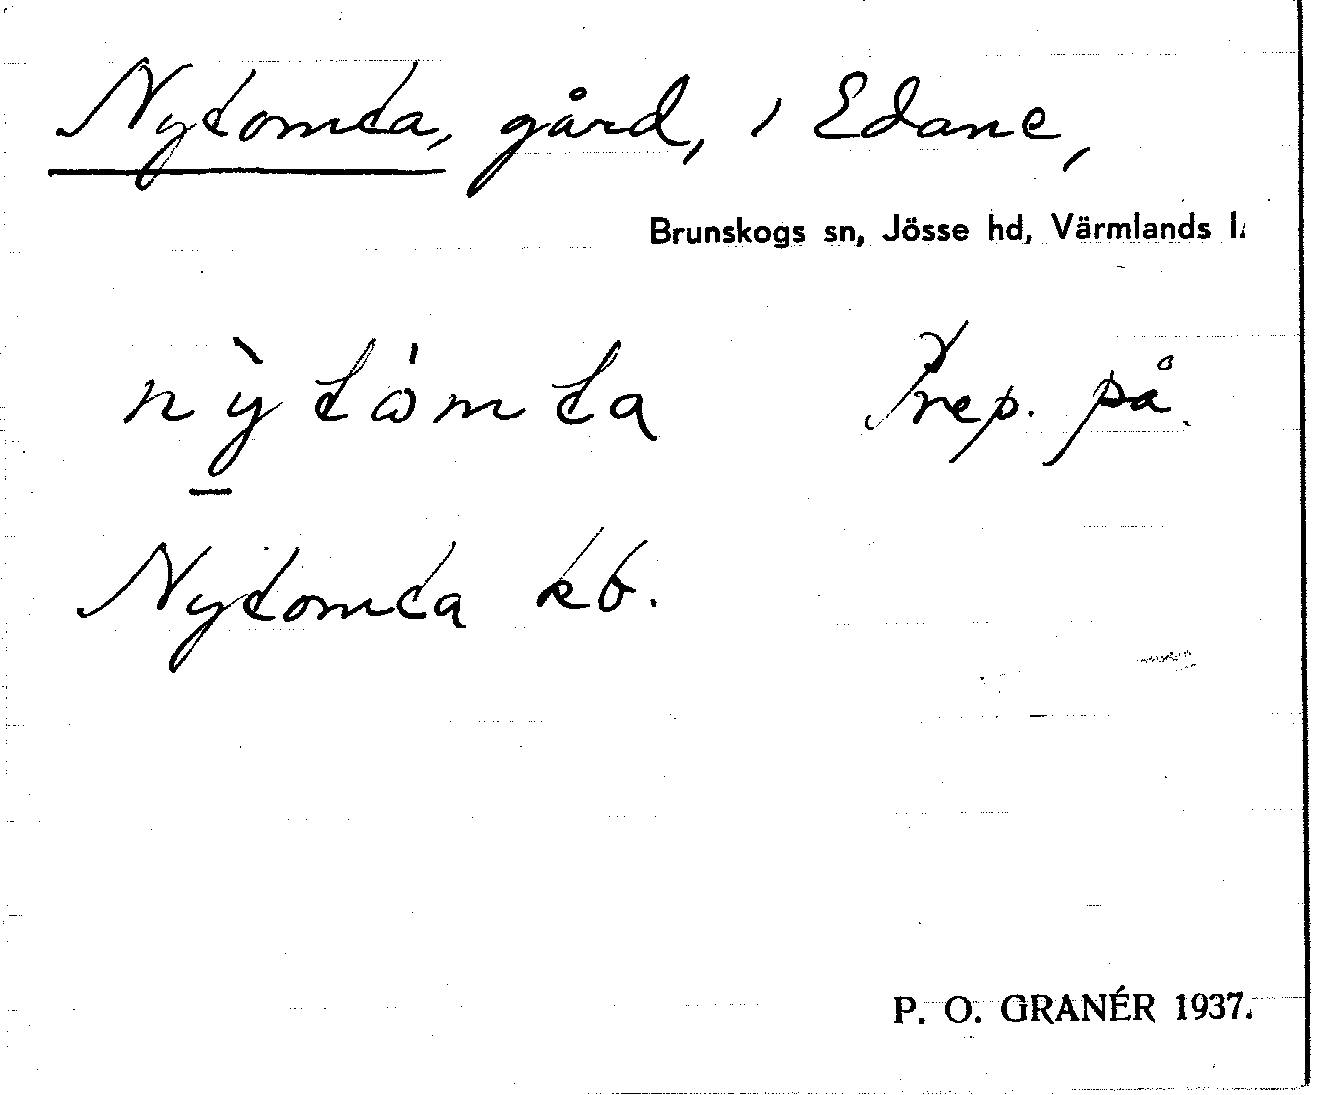 Nytomta, gård, i Edane,
Brunskogs sn, Jösse hd, Värmlands l.
nỳ̱tòmta Prep. på.
Nytomta kb.
P. O. GRANÉR 1937.